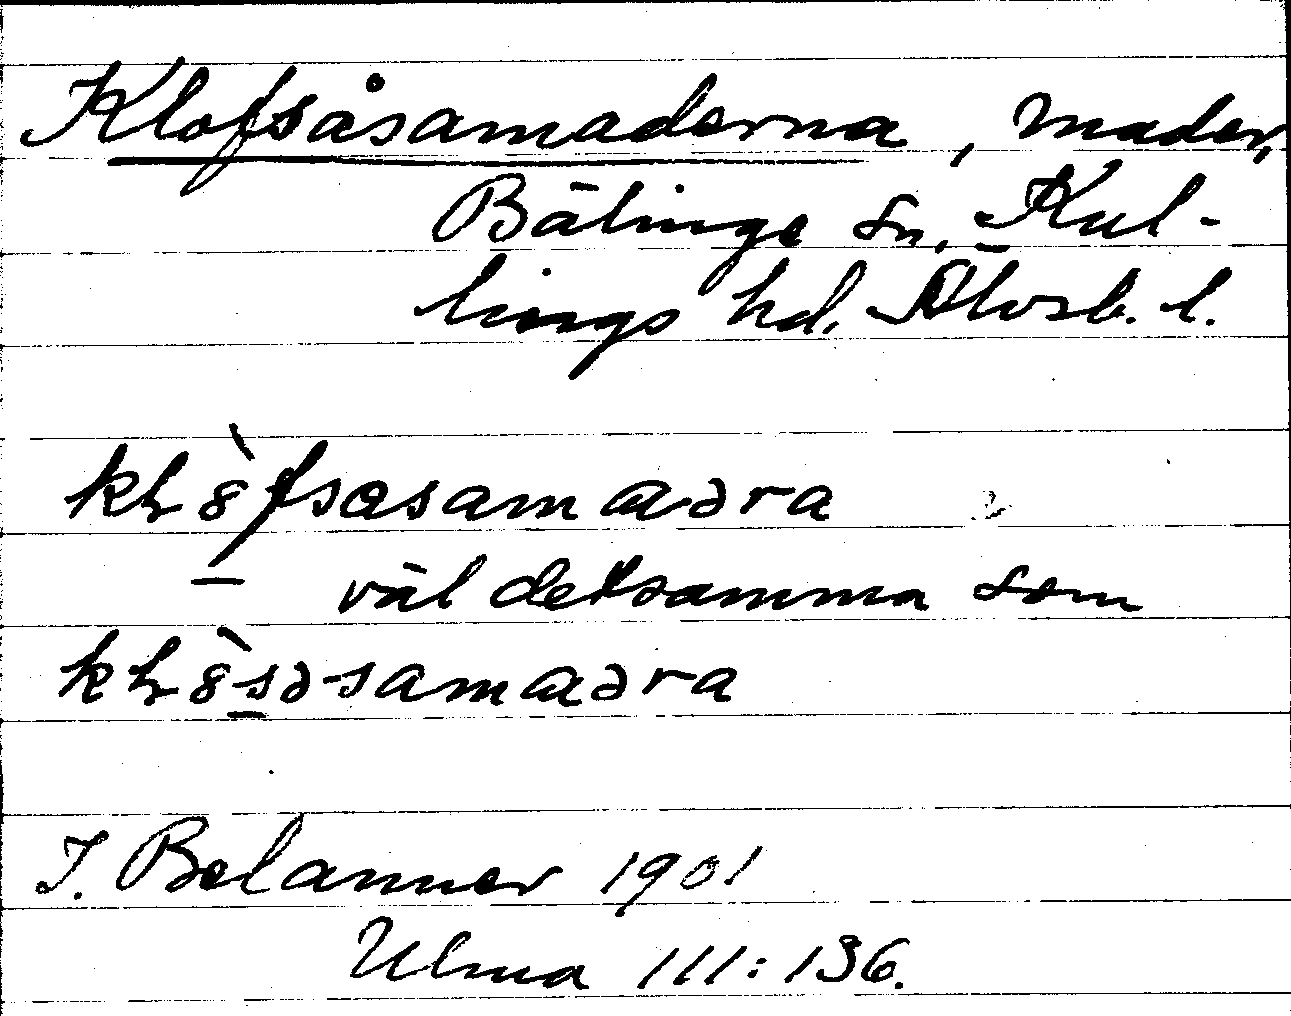 Klofsåsamaderna, mader,
Bälinge sn, Kul-
lings hd. Älvsb. l.
kḷ8̀fsɑsamɑɑəra
väl detsamma som
kḷ8̀səsamɑɑəra
J. Belanner 1901
Ulma 111:136.